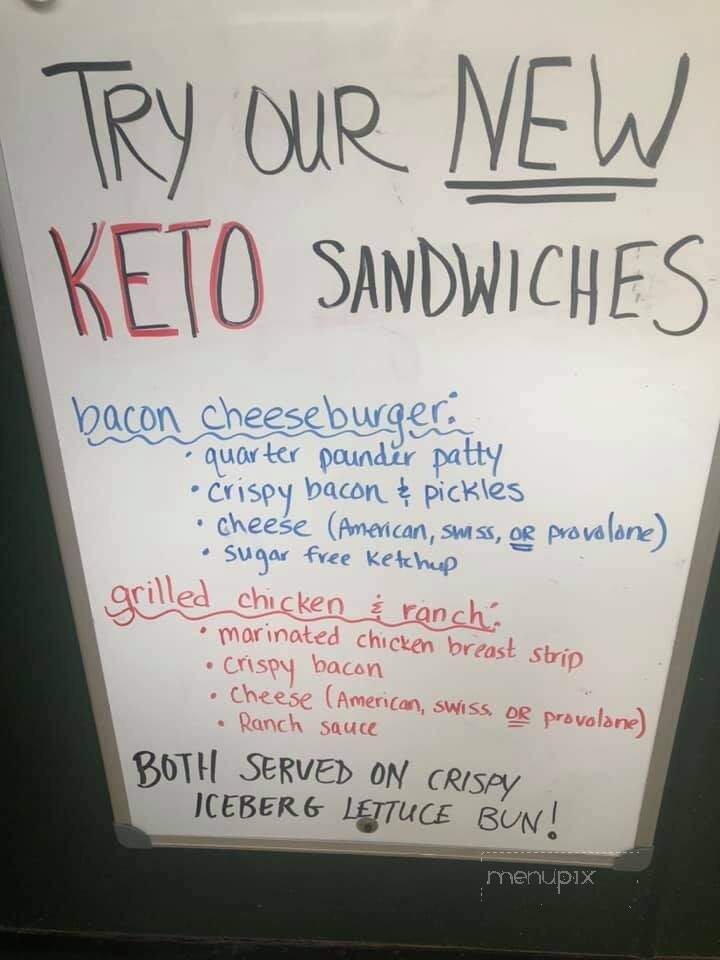 TRY OUR NEW
KETO SANDWICHES
bacon cheeseburger:
• quarter pounder patty
• crispy bacon & pickles
• cheese (American, swiss, OR provolone)
• sugar free ketchup
grilled chicken & ranch:
• marinated chicken breast strip
• crispy bacon
• cheese (American, swiss, OR provolone)
• Ranch sauce
BOTH SERVED ON CRISPY
ICEBERG LETTUCE BUN!
menupix